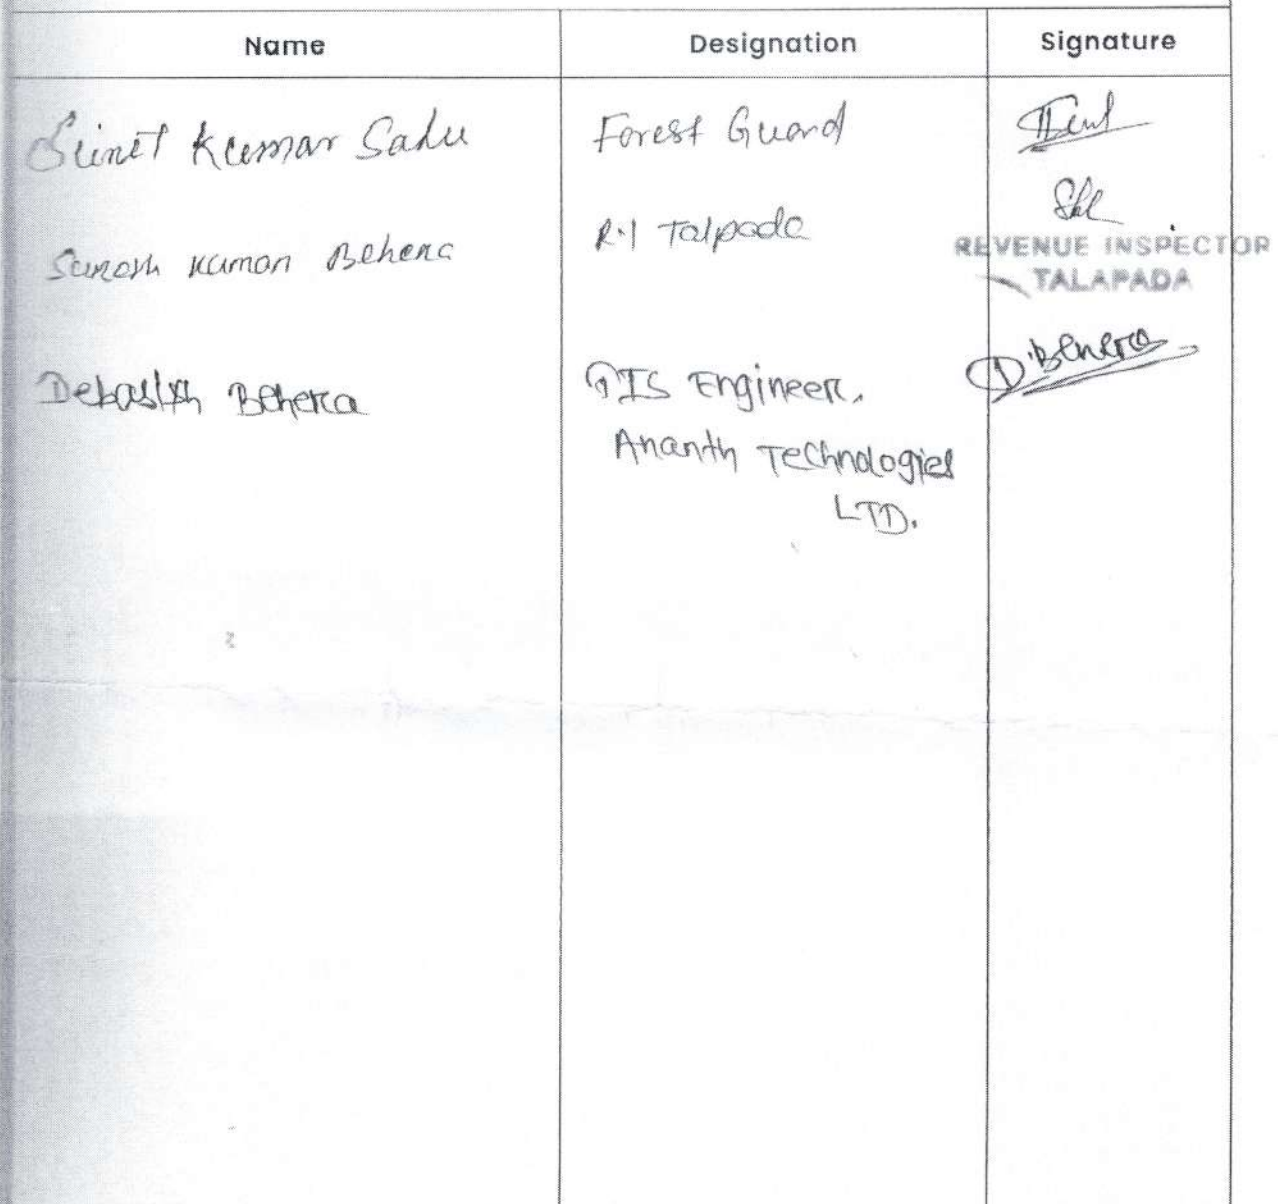 Name Designation Signature
Sunit Kumar Sahu Forest Guard
Kumar Behera R.I Talpada
REVENUE INSPECTOR
TALAPADA
Debasish Behera GIS Engineer, D.Behera
Ananth Technologies
LTD.